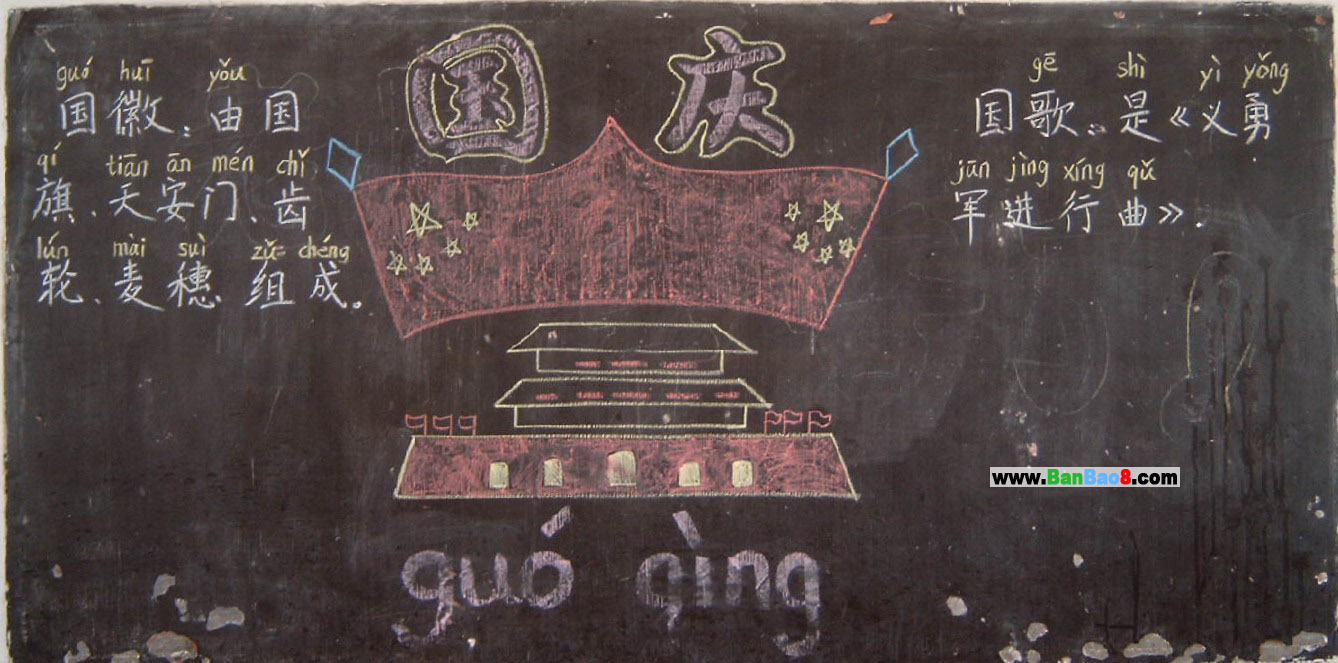 国庆
guó huī yǒu
国徽:由国
qí tiān ān mén chǐ
旗、天安门、齿
lún mài suì zǔ chéng
轮、麦穗 组成。
gē shì yì yǒng
国歌:是《义勇
jūn jìng xíng qǔ
军进行曲》.
www.BanBao8.com
guó qìng